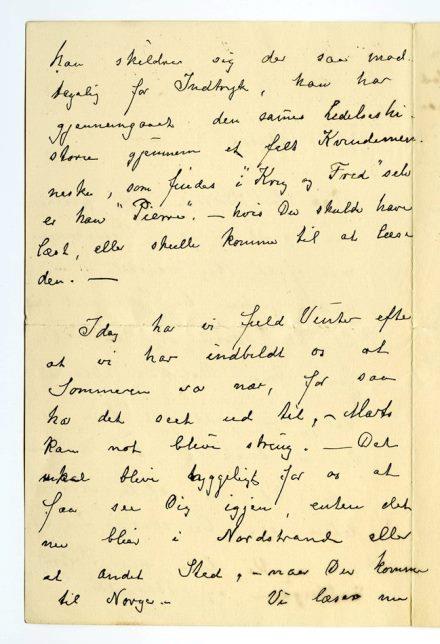 han skildrer sig der saa mod-
tagelig for Indtryk, han har
gjennemgaaet den samme Lidelseshi-
storie gjennem et felt Kvindemen-
neske, som findes i "Krig og Fred" selv
er han "Pierre". – hvis Du skulde have
læst, eller skulle komme til at læse
den. —
Idag har vi fuld Vinter efter
at vi har indbildt os at
Sommeren var nær, for saa
har det seet ud til, – Marts
kan not blive streng. — Det
skal blive hyggeligt for os at
faa see Dig igjen, enten det
nu bliver i Nordstrand eller
et andet Sted, – naar Du kommer
til Norge. – Vi læser nu